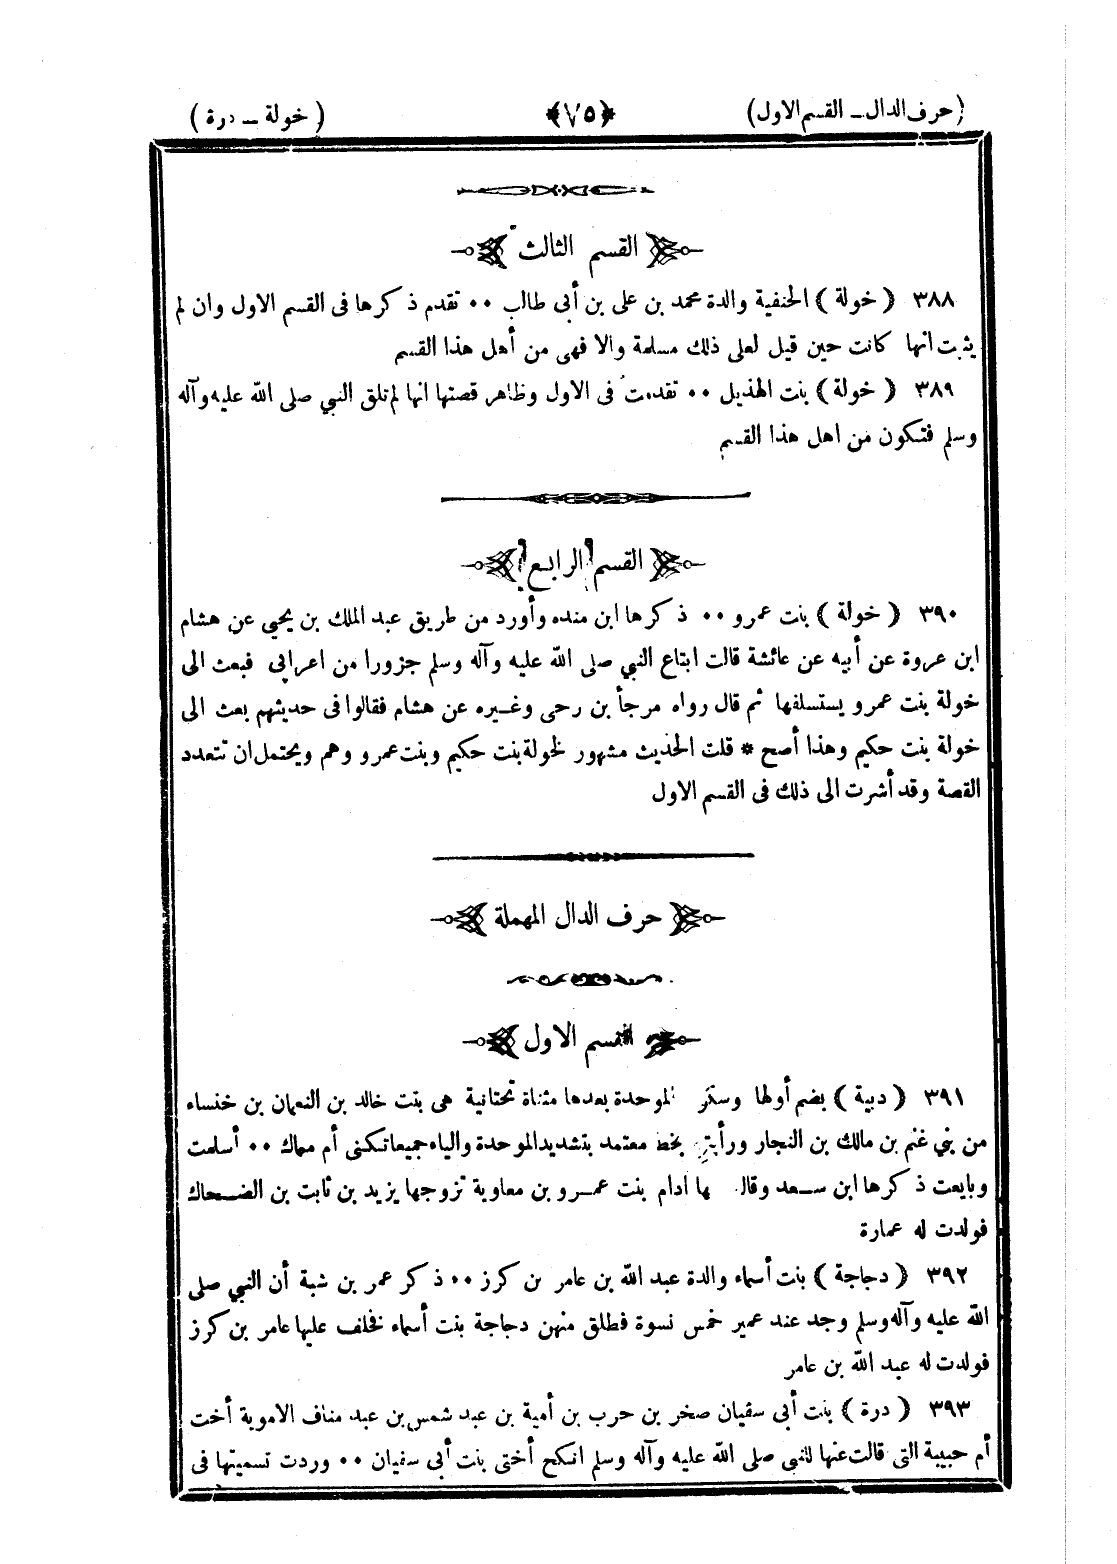 (حرف الدال ــ القسم الاول)
﴿٧٥﴾
(خولة ــ درة)
القسم الثالث
٣٨٨ (خولة) الحنفية والدة محمد بن على بن أبى طالب ٠٠ تقدم ذكرها فى القسم الاول وان لم
يثبت انها كانت حين قيل لعلى ذلك مسلمة والا فهى من أهل هذا القسم
٣٨٩ (خولة) بنت الهذيل ٠٠ تقدمت فى الاول وظاهر قصتها انها لم تلق النبي صلى الله عليه وآله
وسلم فتكون من اهل هذا القسم
القسم الرابع
٣٩٠ (خولة) بنت عمرو ٠٠ ذكرها ابن منده وأورد من طريق عبد الملك بن يحيى عن هشام
ابن عروة عن أبيه عن عائشة قالت ابتاع النبي صلى الله عليه وآله وسلم جزورا من اعرابى فبعث الى
خولة بنت عمرو يستسلفها ثم قال رواه مرجأ بن رحى وغيره عن هشام فقالوا فى حديثهم بعث الى
خولة بنت حكيم وهذا أصح * قلت الحديث مشهور لخولة بنت حكيم وبنت عمرو وهم ويحتمل ان تتعدد
القصة وقد أشرت الى ذلك فى القسم الاول
حرف الدال المهملة
القسم الاول
٣٩١ (دبية) بضم أولها وسكون الموحدة بعدها مثناة تحتانية هى بنت خالد بن النعمان بن خنساء
من بني غنم بن مالك بن النجار ورأيتها بخط معتمد بتشديد الموحدة والياء جميعا تكنى أم سماك ٠٠ أسلمت
وبايعت ذكرها ابن سعد وقال ادام بنت عمرو بن معاوية تزوجها يزيد بن ثابت بن الضحاك
فولدت له عمارة
٣٩٢ (دجاجة) بنت أسماء والدة عبد الله بن عامر بن كرز ٠٠ ذكر عمر بن شبة أن النبي صلى
الله عليه وآله وسلم وجد عند عمير خمس نسوة فطلق منهن دجاجة بنت أسماء فخلف عليها عامر بن كرز
فولدت له عبد الله بن عامر
٣٩٣ (درة) بنت أبى سفيان صخر بن حرب بن أمية بن عبد شمس بن عبد مناف الاموية أخت
أم حبيبة التى قالت عنها للنبى صلى الله عليه وآله وسلم انكح أختى بنت أبى سفيان ٠٠ وردت تسميتها فى